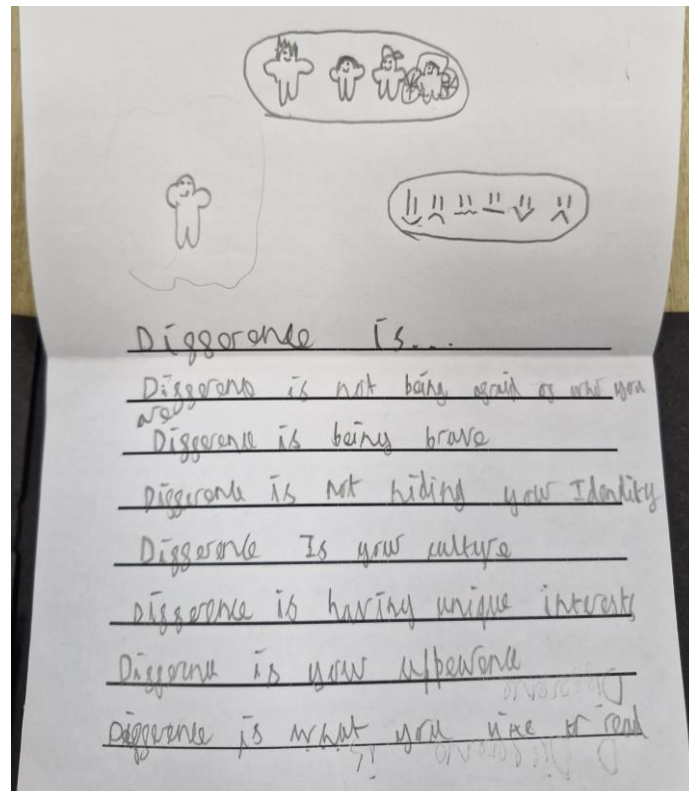 Difference is...
Difference is not being afraid of who you
are
Difference is being brave
Difference is not hiding your Identity
Difference Is your culture
Difference is having unique interests
Difference is your appearence
Difference is what you like to read